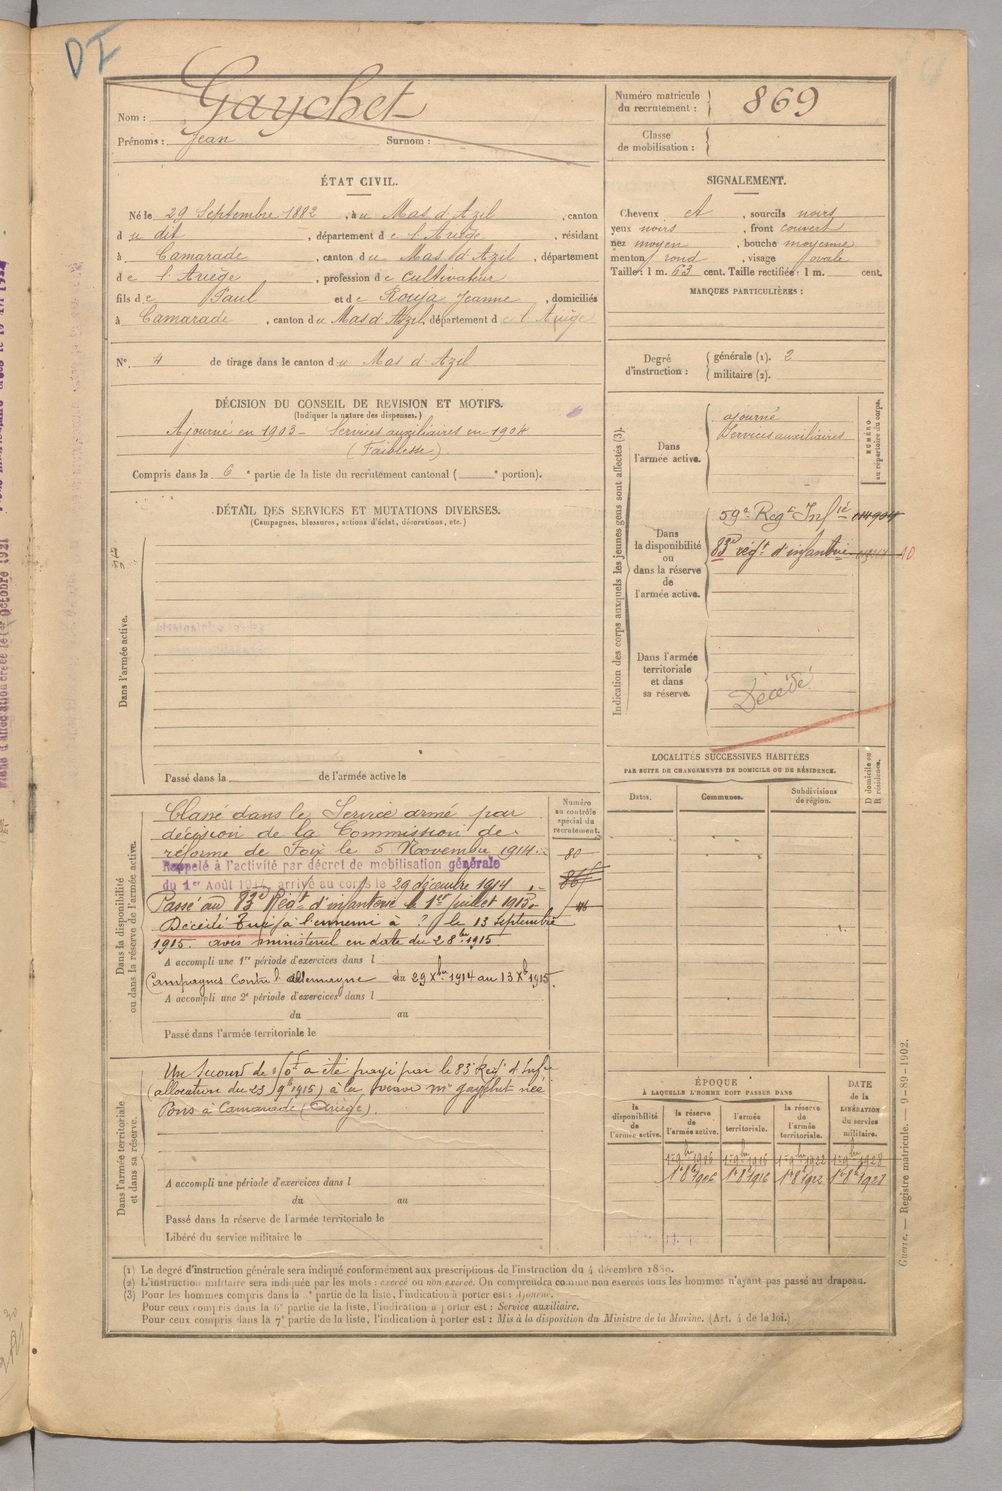 DI
Nom : Gaychet
Prénoms : Jean Surnom :
Numéro matricule
du recrutement : 869
Classe
de mobilisation :
ÉTAT CIVIL.
Né le 29 Septembre 1882, à u Mas d'Azil, canton
d u dit, département d e l'Ariège, résidant
à Camarade, canton d u Mas d'Azil, département
d e l'Ariège, profession d e cultivateur
fils d e Paul et d e Rouja Jeanne, domiciliés
à Camarade, canton d u Mas d'Azil, département d e l'Ariège
N° 4 de tirage dans le canton d u Mas d'Azil
SIGNALEMENT.
Cheveux et, sourcils noirs
yeux noirs, front couvert
nez moyen, bouche moyenne
menton rond, visage ovale
Taille : 1 m. 63 cent. Taille rectifiée : 1 m. cent.
MARQUES PARTICULIÈRES :
Degré
d'instruction :
générale (1). 2
militaire (2).
DÉCISION DU CONSEIL DE REVISION ET MOTIFS.
(Indiquer la nature des dispenses.)
Ajourné en 1903 - Services auxiliaires en 1904
(Faiblesse)
Compris dans la 6e partie de la liste du recrutement cantonal ( e portion).
DÉTAIL DES SERVICES ET MUTATIONS DIVERSES.
(Campagnes, blessures, actions d'éclat, décorations, etc.)
Dans l'armée active.
Passé dans la de l'armée active le
Indication des corps auxquels les jeunes gens sont affectés (3).
NUMÉRO
au répertoire du corps.
Dans
l'armée active.
ajourné
Services auxiliaires
Dans
la disponibilité
ou
dans la réserve
de
l'armée active.
59e Regt Infie
83e régt d'infanterie
Dans l'armée
territoriale
et dans
sa réserve.
Décédé
Dans la disponibilité
ou dans la réserve de l'armée active.
Numéro
au contrôle
spécial du
recrutement.
80
Classé dans le Service armé par
décision de la Commission de
réforme de Foix le 5 Novembre 1914.
Rappelé à l'activité par décret de mobilisation générale
du 1er Août 1914, arrivé au corps le 29 décembre 1914
Passé au 83e Régt d'infanterie le 1er juillet 1915.
Décédé Tué à l'ennemi à ? le 13 Septembre
1915. avis ministériel en date du 28 bre 1915
A accompli une 1re période d'exercices dans l
Campagnes Contre l'allemagne du 29 Xbre 1914 au 13 Xb 1915.
A accompli une 2e période d'exercices dans l
du au
Passé dans l'armée territoriale le
Dans l'armée territoriale
et dans sa réserve.
Un secours de a été payé par le 83e Régt d'Infie
(allocation du 23 9b 1915) à la veuve me gaychet née
Pons à Camarade (Ariège).
A accompli une période d'exercices dans l
du au
Passé dans la réserve de l'armée territoriale le
Libéré du service militaire le
LOCALITÉS SUCCESSIVES HABITÉES
PAR SUITE DE CHANGEMENTS DE DOMICILE OU DE RÉSIDENCE.
Dates. Communes. Subdivisions
de région.
D domicile ou
R résidence.
ÉPOQUE
À LAQUELLE L'HOMME DOIT PASSER DANS
la
disponibilité
de
l'armée active.
la réserve
de
l'armée active.
l'armée
territoriale.
la réserve
de
l'armée
territoriale.
DATE
de la
LIBÉRATION
du service
militaire.
1er 9bre 1906 1er 9bre 1916 1er 9bre 1922 1er 9bre 1928
1er 8b 1906 1er 8b 1916 1er 8b 1922 1er 8b 1928
(1) Le degré d'instruction générale sera indiqué conformément aux prescriptions de l'instruction du 4 décembre 1889.
(2) L'instruction militaire sera indiquée par les mots : exercé ou non exercé. On comprendra comme non exercés tous les hommes n'ayant pas passé au drapeau.
(3) Pour les hommes compris dans la 5e partie de la liste, l'indication à porter est : Ajourné.
Pour ceux compris dans la 6e partie de la liste, l'indication à porter est : Service auxiliaire.
Pour ceux compris dans la 7e partie de la liste, l'indication à porter est : Mis à la disposition du Ministre de la Marine. (Art. 4 de la loi.)
Guerre. — Registre matricule. — 9-89-1902.